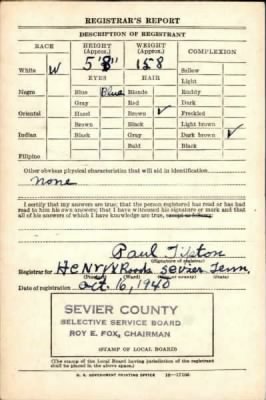 REGISTRAR'S REPORT
DESCRIPTION OF REGISTRANT
RACE HEIGHT (Approx.) WEIGHT (Approx.) COMPLEXION
White W 5'8" 158 Sallow
EYES HAIR Light
Negro Blue Blue Blonde Ruddy
Gray Red Dark
Oriental Hazel Brown ✓ Freckled
Brown Black Light brown
Indian Black Gray Dark brown ✓
Bald Black
Filipino
Other obvious physical characteristics that will aid in identification
None
I certify that my answers are true; that the person registered has read or has had
read to him his own answers; that I have witnessed his signature or mark and that
all of his answers of which I have knowledge are true, except as follows:
Paul Tipton
(Signature of registrar)
Registrar for Henry X Roads Sevier Tenn.
(Precinct) (Ward) (City or county) (State)
Date of registration Oct. 16, 1940
SEVIER COUNTY
SELECTIVE SERVICE BOARD
ROY E. FOX, CHAIRMAN
(STAMP OF LOCAL BOARD)
(The stamp of the Local Board having jurisdiction of the registrant
shall be placed in the above space.)
U. S. GOVERNMENT PRINTING OFFICE